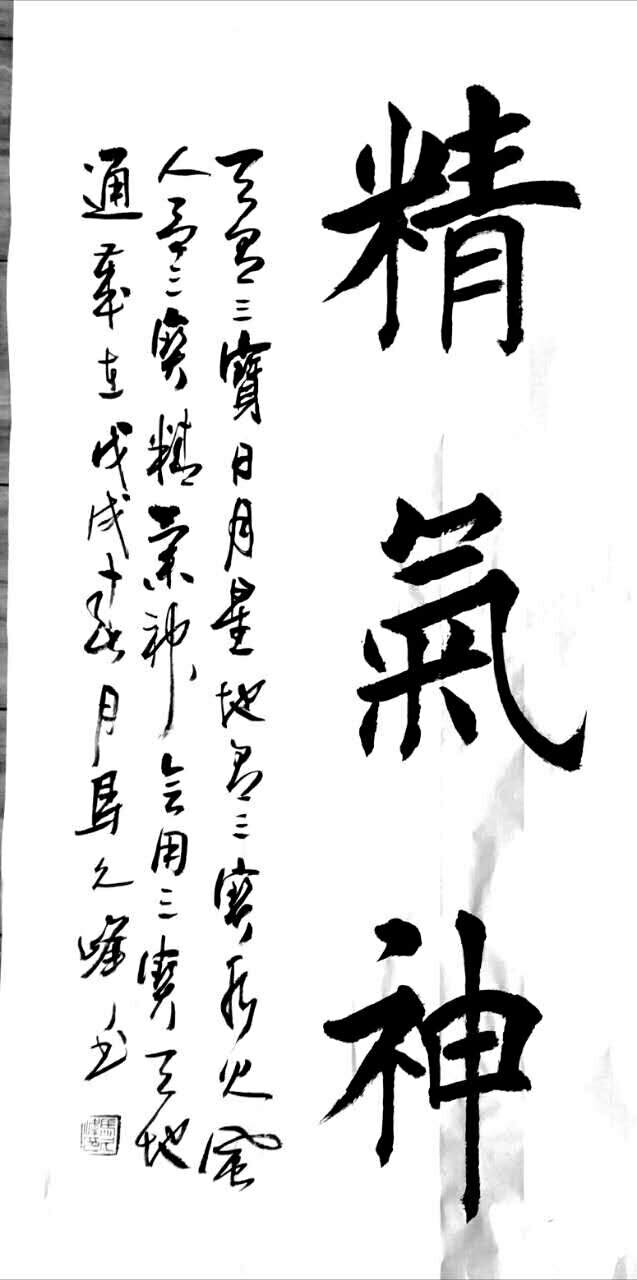 精氣神
天有三寶日月星地有三寶水火風
人有三寶精氣神会用三寶天地
通歲在戊戌十月馬元峰書